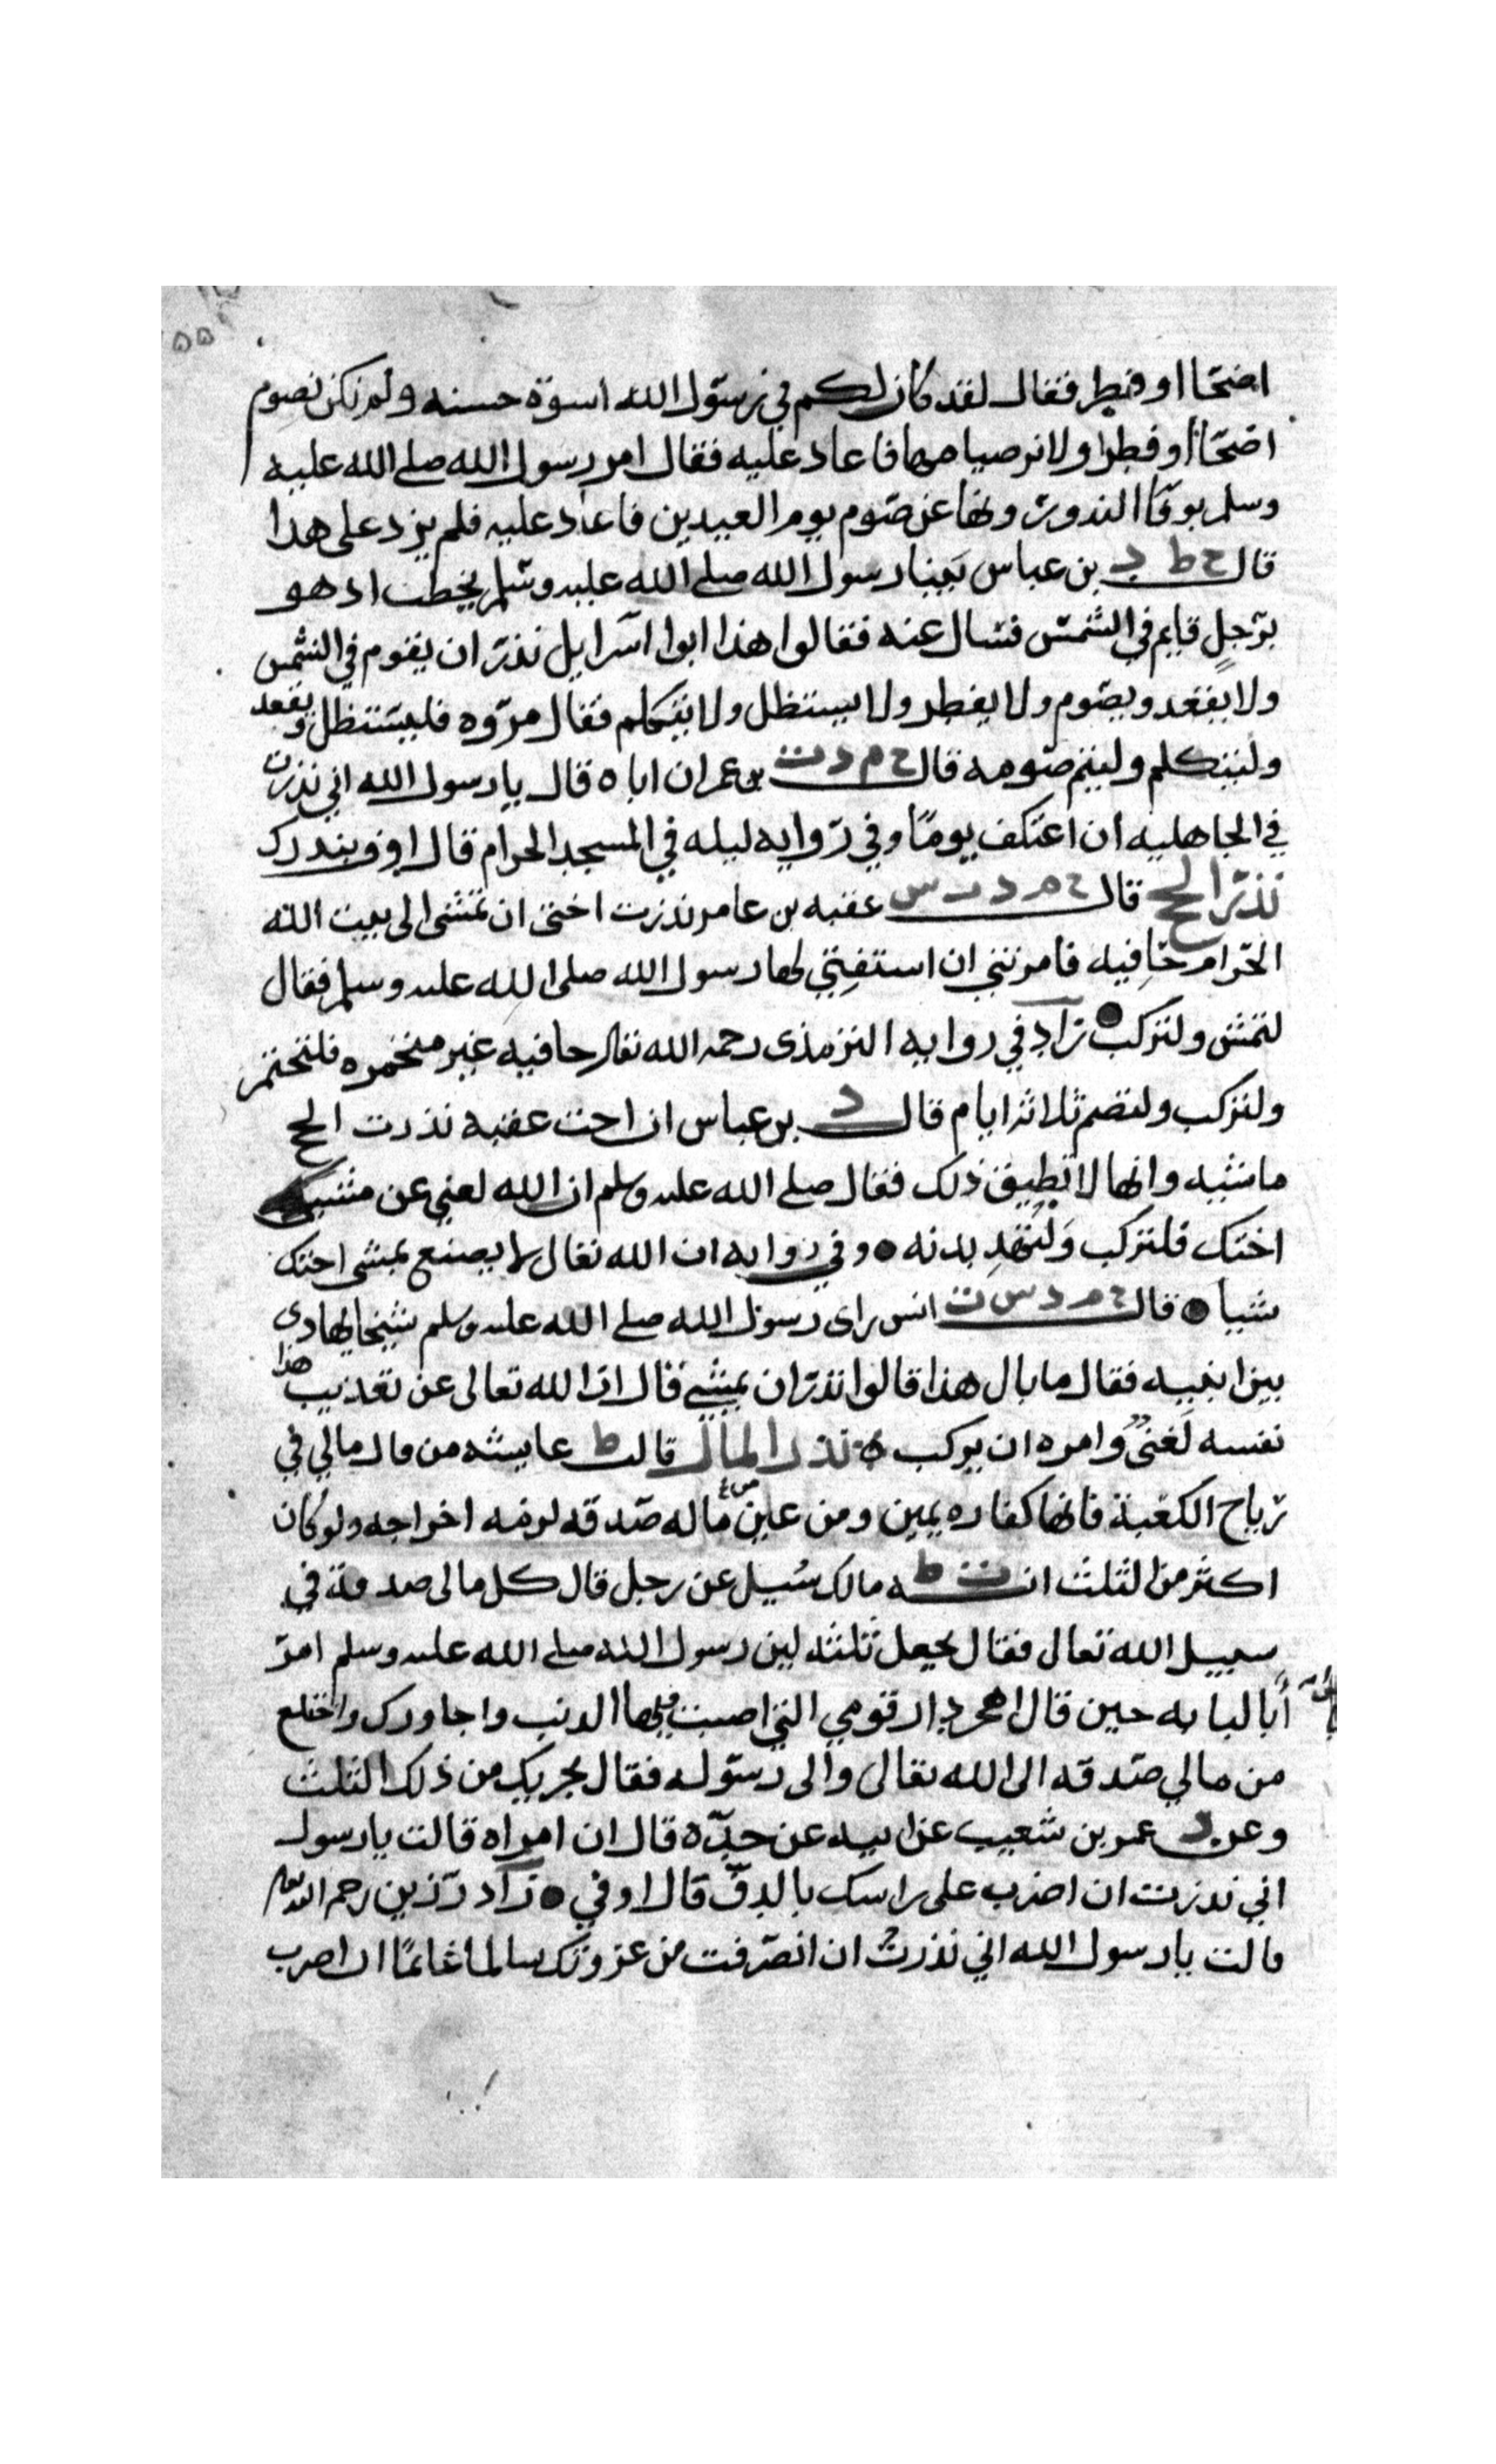 ٥٥
اضحا او فطر فقال لقد كان لكم في رسول الله اسوة حسنه ولم نكن نصوم
اضحا او فطرا ولا نر صيامهما فاعاد عليه فقال امر رسول الله صلى الله عليه
وسلم بوفا النذور ونها عن صوم يوم العيدين فاعاد عليه فلم يزد على هذا
قال خ ط د بن عباس بينا رسول الله صلى الله عليه وسلم يخطب اذ هو
برجلٍ قايم في الشمس فسال عنه فقالوا هذا ابوا اسرايل نذر ان يقوم في الشمس
ولا يقعد ويصوم ولا يفطر ولا يستظل ولا يتكلم فقال مروه فليستظل ويقعد
وليتكلم وليتم صومه قال خ م د ت بن عمر ان اباه قال يا رسول الله اني نذرت
في الجاهليه ان اعتكف يومًا وفي روايه ليله في المسجد الحرام قال اوف بنذرك
نذر الحج قال خ م د ت س عقبه بن عامر نذرت اختي ان تمشى الى بيت الله
الحرام حافيه فامرتني ان استفتي لها رسول الله صلى الله عليه وسلم فقال
لتمش ولتركب زاد في روايه الترمذى رحمه الله تعالى حافيه غير مختمره فلتختمر
ولتركب ولتصم ثلاثة ايام قال د بن عباس ان اخت عقبه نذرت الحج
ماشيه وانها لا تطيق ذلك فقال صلى الله عليه وسلم ان الله لغني عن مشي
اختك فلتركب وَلتُهدِ بدنه وفي روايه ان الله تعالى لا يصنع بمشى اختك
شيا قال خ م د س ت انس راى رسول الله صلى الله عليه وسلم شيخا يهادى
بين ابنيه فقال ما بال هذا قالوا نذر ان يمشي قال ان الله تعالى عن تعذيب هذا
نفسه لَغنىٌ وامره ان يركب نذر المال قالت ط عايشه من قال مالي في
رتاج الكعبة فانها كفاره يمين ومن عين من ماله صدقه لزمه اخراجه ولو كان
اكثر من الثلث ان ط مالك سُيل عن رجل قال كل مالى صدقة في
سبيل الله تعالى فقال يجعل ثلثه لين رسول الله صلى الله عليه وسلم امر
أبا لبابه حين قال اهجر دار قومي التي اصبت فيها الذنب واجاورك وانخلع
من مالي صدقه الى الله تعالى والى رسوله فقال يجزيك من ذلك الثلث
وعن د عمر بن شعيب عن ابيه عن جده قال ان امراه قالت يا رسول
اني نذرت ان اضرب على راسك بالدف قال اوفي زاد رزين رحمه الله تعالى
قالت يا رسول الله اني نذرتُ ان انصرفت من غزوتك سالما غانمًا ان اضرب